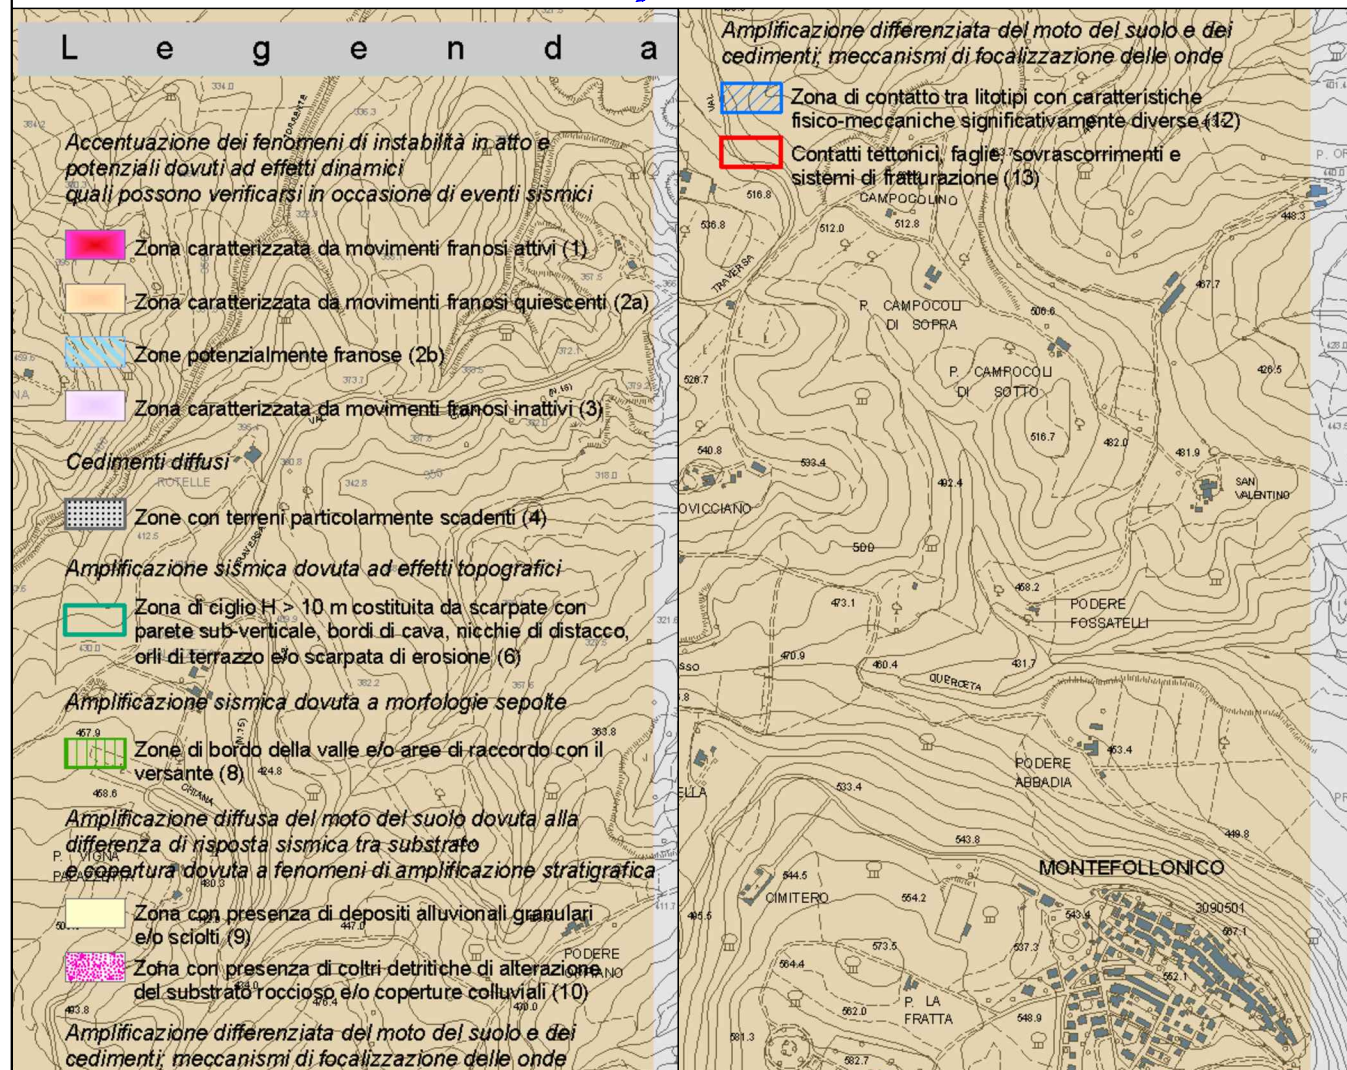 L e g e n d a
Accentuazione dei fenomeni di instabilità in atto e
potenziali dovuti ad effetti dinamici
quali possono verificarsi in occasione di eventi sismici
Zona caratterizzata da movimenti franosi attivi (1)
Zona caratterizzata da movimenti franosi quiescenti (2a)
Zone potenzialmente franose (2b)
Zona caratterizzata da movimenti franosi inattivi (3)
Cedimenti diffusi
ROTELLE
Zone con terreni particolarmente scadenti (4)
Amplificazione sismica dovuta ad effetti topografici
Zona di ciglio H > 10 m costituita da scarpate con
parete sub-verticale, bordi di cava, nicchie di distacco,
orli di terrazzo e/o scarpata di erosione (6)
Amplificazione sismica dovuta a morfologie sepolte
467.9
363.8
Zone di bordo della valle e/o aree di raccordo con il
versante (8)
424.8
458.6
CHIANA
Amplificazione diffusa del moto del suolo dovuta alla
differenza di risposta sismica tra substrato
e copertura dovuta a fenomeni di amplificazione stratigrafica
P. VIGNA
480.3
Zona con presenza di depositi alluvionali granulari
e/o sciolti (9)
447.0
PODERE
Zona con presenza di coltri detritiche di alterazione
del substrato roccioso e/o coperture colluviali (10)
493.8
476.4
430.0
Amplificazione differenziata del moto del suolo e dei
cedimenti; meccanismi di focalizzazione delle onde
Amplificazione differenziata del moto del suolo e dei
cedimenti; meccanismi di focalizzazione delle onde
VAL
Zona di contatto tra litotipi con caratteristiche
fisico-meccaniche significativamente diverse (12)
Contatti tettonici, faglie, sovrascorrimenti e
sistemi di fratturazione (13)
516.8
CAMPOCOLINO
536.8
512.0
512.8
448.3
TRAVERSA
467.7
P. CAMPOCOLI
DI SOPRA
506.6
P. CAMPOCOLI
DI SOTTO
526.7
426.5
516.7
482.0
481.9
540.8
533.4
492.4
SAN
VALENTINO
OVICCIANO
500
473.1
458.2
PODERE
FOSSATELLI
470.9
460.4
431.7
QUERCETA
SSO
463.4
PODERE
ABBADIA
ELLA
533.4
449.8
543.8
MONTEFOLLONICO
544.5
CIMITERO
554.2
543.4
3090501
567.1
495.5
573.5
537.3
564.4
552.1
P. LA
FRATTA
562.0
548.9
581.3
582.7